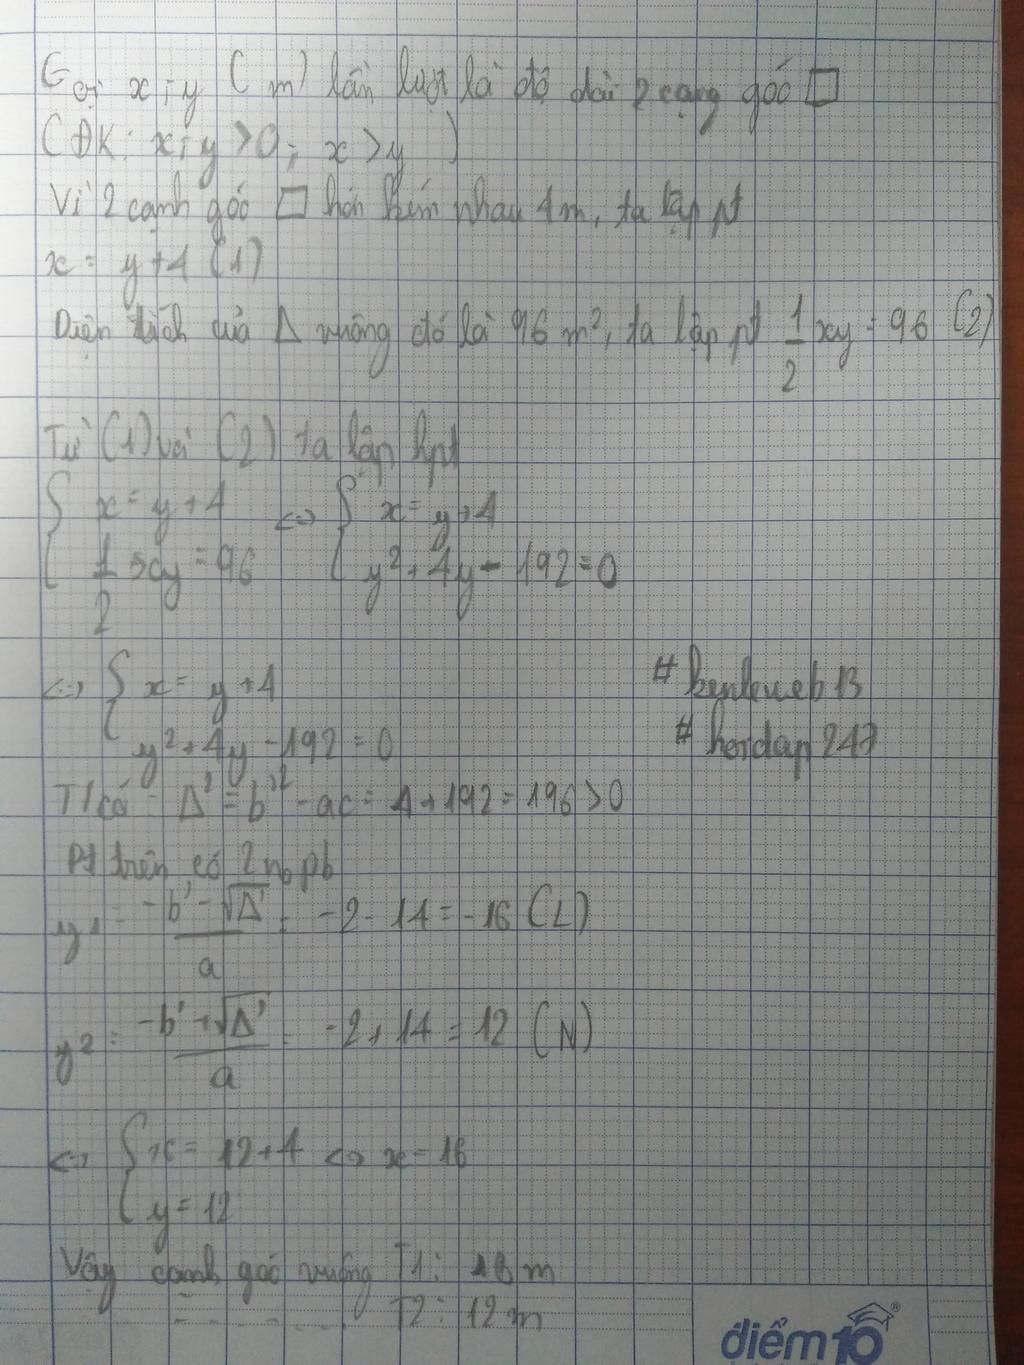 Gọi x ; y ( m ) lần lượt là độ dài 2 cạng góc □
( ĐK : x ; y > 0 ; x > y )
Vì 2 cạnh góc □ hơn kém nhau 4m, ta lập pt
x = y + 4 (1)
Diện tích của Δ vuông đó là 96 m², ta lập pt 1/2 xy = 96 (2)
Từ (1) và (2) ta lập hpt
{ x = y + 4 <=> { x = y + 4
1/2 xy = 96 y² + 4y - 192 = 0
<=> { x = y + 4
y² + 4y - 192 = 0
# hoidap 247
T/có Δ' = b'² - ac = 4 + 192 = 196 > 0
Pt trên có 2 n₀ pb
y1 = -b' - √Δ' / a = -2 - 14 = -16 (L)
y2 = -b' + √Δ' / a = -2 + 14 = 12 (N)
<=> { x = 12 + 4 <=> x = 16
y = 12
Vậy cạnh góc vuông T1 : 16 m
T2 : 12 m
điểm10